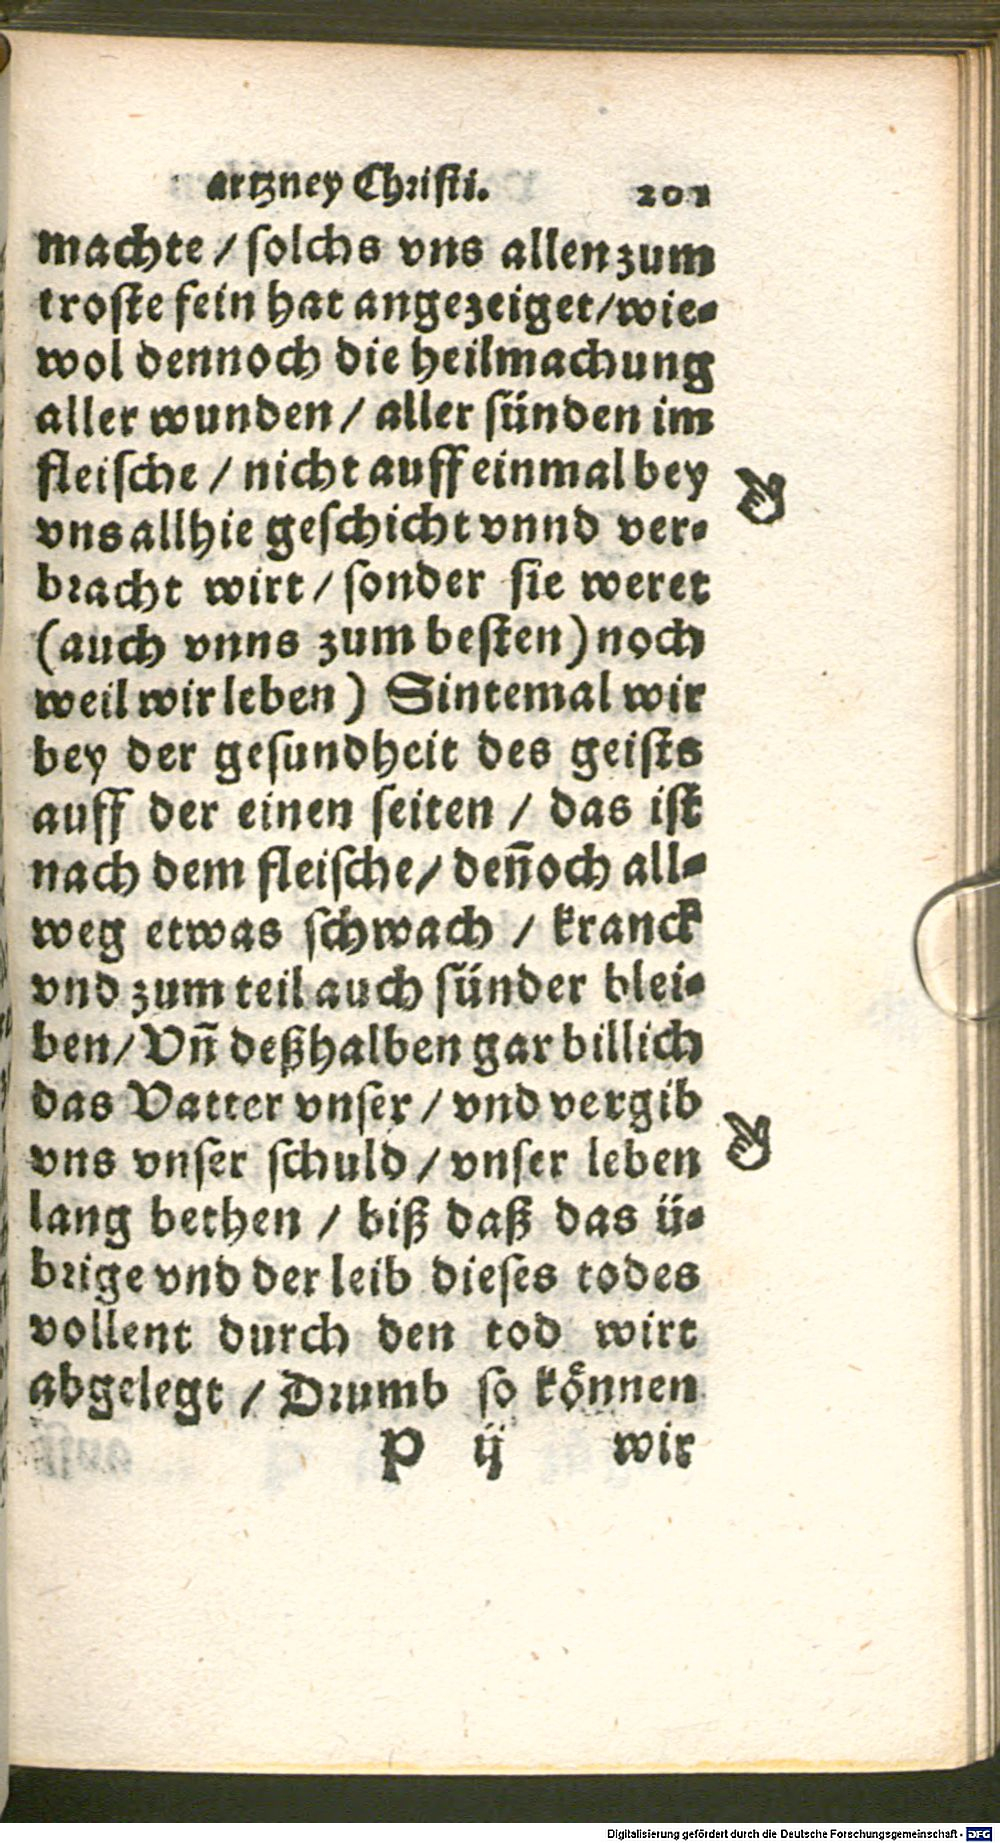 artzney Christi. 201
machte / solchs vns allen zum
troste fein hat angezeiget/wie-
wol dennoch die heilmachung
aller wunden / aller sünden im
fleische / nicht auff einmal bey
vns allhie geschicht vnnd ver-
bracht wirt / sonder sie weret
(auch vnns zum besten) noch
weil wir leben) Sintemal wir
bey der gesundheit des geists
auff der einen seiten / das ist
nach dem fleische/ deñoch all-
weg etwas schwach / kranck
vnd zum teil auch sünder blei-
ben/ Vñ deßhalben gar billich
das Vatter vnser / vnd vergib
vns vnser schuld / vnser leben
lang bethen / biß daß das ü-
brige vnd der leib dieses todes
vollent durch den tod wirt
abgelegt / Drumb so koͤnnen
P ij wir
Digitalisierung gefördert durch die Deutsche Forschungsgemeinschaft - DFG